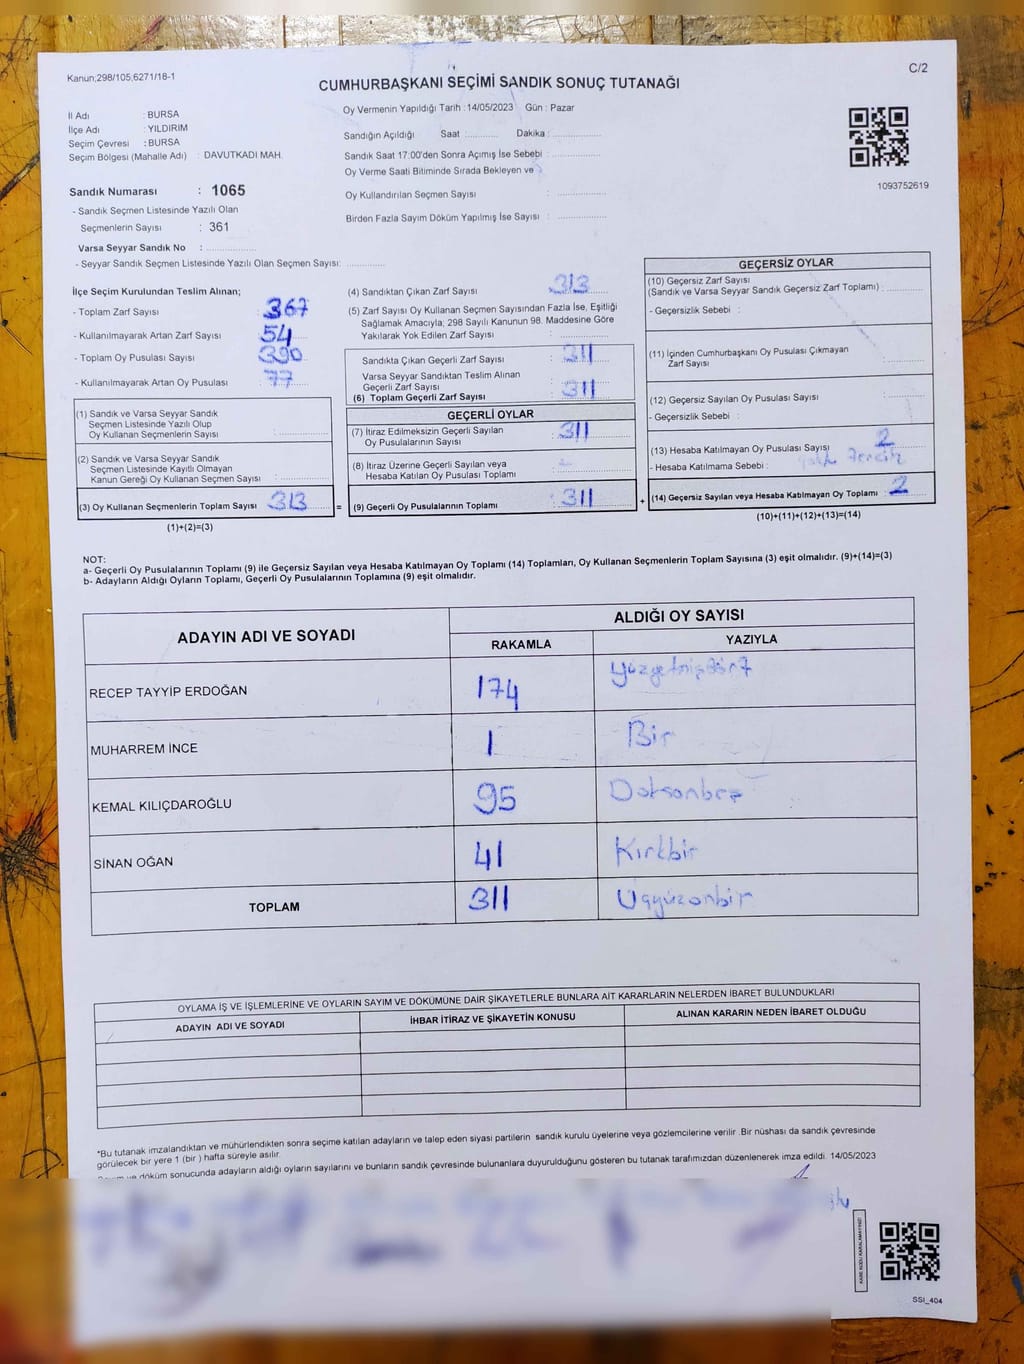 Kanun;298/105,6271/18-1
C/2
CUMHURBAŞKANI SEÇİMİ SANDIK SONUÇ TUTANAĞI
Oy Vermenin Yapıldığı Tarih : 14/05/2023 Gün : Pazar
İl Adı : BURSA
İlçe Adı : YILDIRIM
Seçim Çevresi : BURSA
Seçim Bölgesi (Mahalle Adı) : DAVUTKADI MAH.
Sandığın Açıldığı Saat :.......... Dakika :..............
Sandık Saat 17:00'den Sonra Açımış İse Sebebi :..............
Oy Verme Saati Bitiminde Sırada Bekleyen ve
Oy Kullandırılan Seçmen Sayısı : ..............
Birden Fazla Sayım Döküm Yapılmış İse Sayısı : ..............
1093752619
Sandık Numarası : 1065
- Sandık Seçmen Listesinde Yazılı Olan
Seçmenlerin Sayısı : 361
Varsa Seyyar Sandık No : ..............
- Seyyar Sandık Seçmen Listesinde Yazılı Olan Seçmen Sayısı: ...........
İlçe Seçim Kurulundan Teslim Alınan;
- Toplam Zarf Sayısı : 367
- Kullanılmayarak Artan Zarf Sayısı : 54
- Toplam Oy Pusulası Sayısı : 390
- Kullanılmayarak Artan Oy Pusulası : 77
(1) Sandık ve Varsa Seyyar Sandık
Seçmen Listesinde Yazılı Olup
Oy Kullanan Seçmenlerin Sayısı : ..............
(2) Sandık ve Varsa Seyyar Sandık
Seçmen Listesinde Kayıtlı Olmayan
Kanun Gereği Oy Kullanan Seçmen Sayısı : ..............
(3) Oy Kullanan Seçmenlerin Toplam Sayısı : 313 =
(1)+(2)=(3)
(4) Sandıktan Çıkan Zarf Sayısı : 313
(5) Zarf Sayısı Oy Kullanan Seçmen Sayısından Fazla İse, Eşitliği
Sağlamak Amacıyla; 298 Sayılı Kanunun 98. Maddesine Göre
Yakılarak Yok Edilen Zarf Sayısı : ..............
Sandıkta Çıkan Geçerli Zarf Sayısı : 311
Varsa Seyyar Sandıktan Teslim Alınan
Geçerli Zarf Sayısı
(6) Toplam Geçerli Zarf Sayısı : 311
GEÇERLİ OYLAR
(7) İtiraz Edilmeksizin Geçerli Sayılan
Oy Pusulalarının Sayısı : 311
(8) İtiraz Üzerine Geçerli Sayılan veya
Hesaba Katılan Oy Pusulası Toplamı :
(9) Geçerli Oy Pusulalarının Toplamı : 311 +
GEÇERSİZ OYLAR
(10) Geçersiz Zarf Sayısı
(Sandık ve Varsa Seyyar Sandık Geçersiz Zarf Toplamı) : ..........
- Geçersizlik Sebebi :
(11) İçinden Cumhurbaşkanı Oy Pusulası Çıkmayan
Zarf Sayısı : ..........
(12) Geçersiz Sayılan Oy Pusulası Sayısı : ..........
- Geçersizlik Sebebi :
(13) Hesaba Katılmayan Oy Pusulası Sayısı : 2
- Hesaba Katılmama Sebebi :
(14) Geçersiz Sayılan veya Hesaba Katılmayan Oy Toplamı : 2
(10)+(11)+(12)+(13)=(14)
NOT:
a- Geçerli Oy Pusulalarının Toplamı (9) ile Geçersiz Sayılan veya Hesaba Katılmayan Oy Toplamı (14) Toplamları, Oy Kullanan Seçmenlerin Toplam Sayısına (3) eşit olmalıdır. (9)+(14)=(3)
b- Adayların Aldığı Oyların Toplamı, Geçerli Oy Pusulalarının Toplamına (9) eşit olmalıdır.
ADAYIN ADI VE SOYADI
ALDIĞI OY SAYISI
RAKAMLA YAZIYLA
RECEP TAYYİP ERDOĞAN 174 Yüzyetmişdört
MUHARREM İNCE 1 Bir
KEMAL KILIÇDAROĞLU 95 Doksanbeş
SİNAN OĞAN 41 Kırkbir
TOPLAM 311 Üçyüzonbir
OYLAMA İŞ VE İŞLEMLERİNE VE OYLARIN SAYIM VE DÖKÜMÜNE DAİR ŞİKAYETLERLE BUNLARA AİT KARARLARIN NELERDEN İBARET BULUNDUKLARI
ADAYIN ADI VE SOYADI İHBAR İTİRAZ VE ŞİKAYETİN KONUSU ALINAN KARARIN NEDEN İBARET OLDUĞU
*Bu tutanak imzalandıktan ve mühürlendikten sonra seçime katılan adayların ve talep eden siyasi partilerin sandık kurulu üyelerine veya gözlemcilerine verilir .Bir nüshası da sandık çevresinde
görülecek bir yere 1 (bir ) hafta süreyle asılır.
ve döküm sonucunda adayların aldığı oyların sayılarını ve bunların sandık çevresinde bulunanlara duyurulduğunu gösteren bu tutanak tarafımızdan düzenlenerek imza edildi. 14/05/2023
KARE KODU KARALAMAYINIZ!
SSI_404